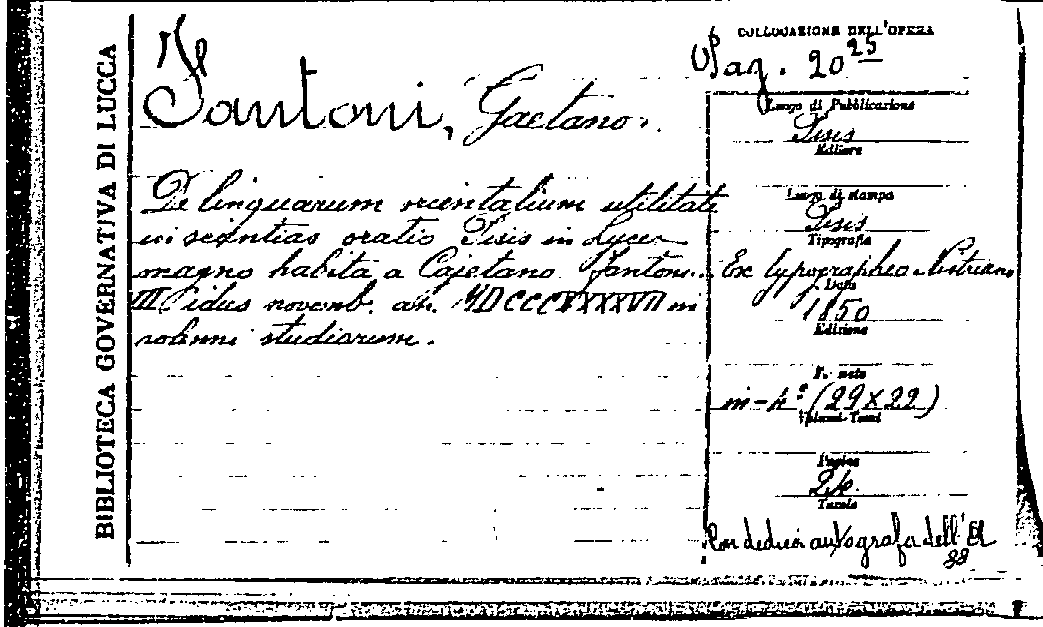 BIBLIOTECA GOVERNATIVA DI LUCCA
COLLOCAZIONE DELL'OPERA
Pag. 20 25
Fantoni, Gaetano.
De linguarum orientalium utilitate
in scientias oratio Pisis in Lyceo
magno habita a Cajetano Fantoni
III idus novemb. an. MDCCCXXXXVII in
solemni studiorum.
Luogo di Pubblicazione
Pisis
Editore
Luogo di stampa
Pisis
Tipografia
Ex typographeo Nistriano
Data
1850
Edizione
F.to
in-4° (29X22)
Volumi-Tomi
Pagine
24.
Tavole
Con dedica autografa dell'
88